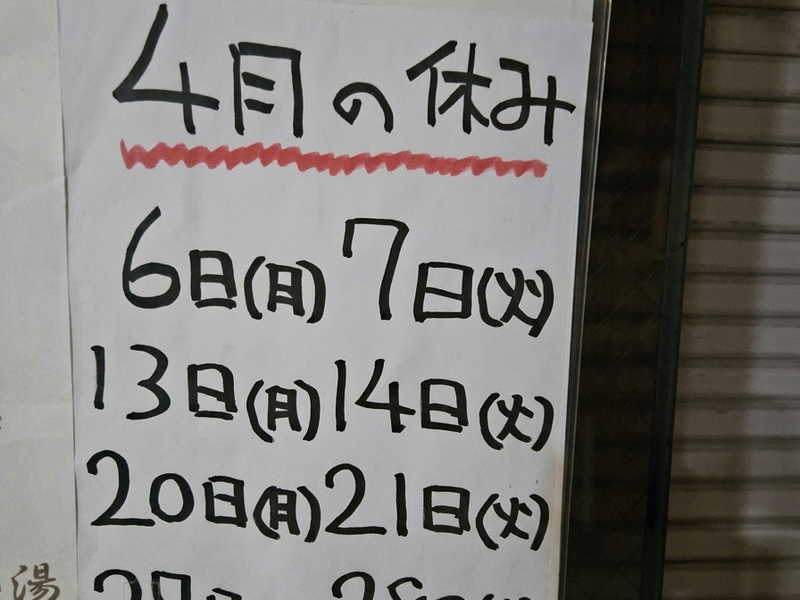 4月の休み
6日(月) 7日(火)
13日(月) 14日(火)
20日(月) 21日(火)
湯